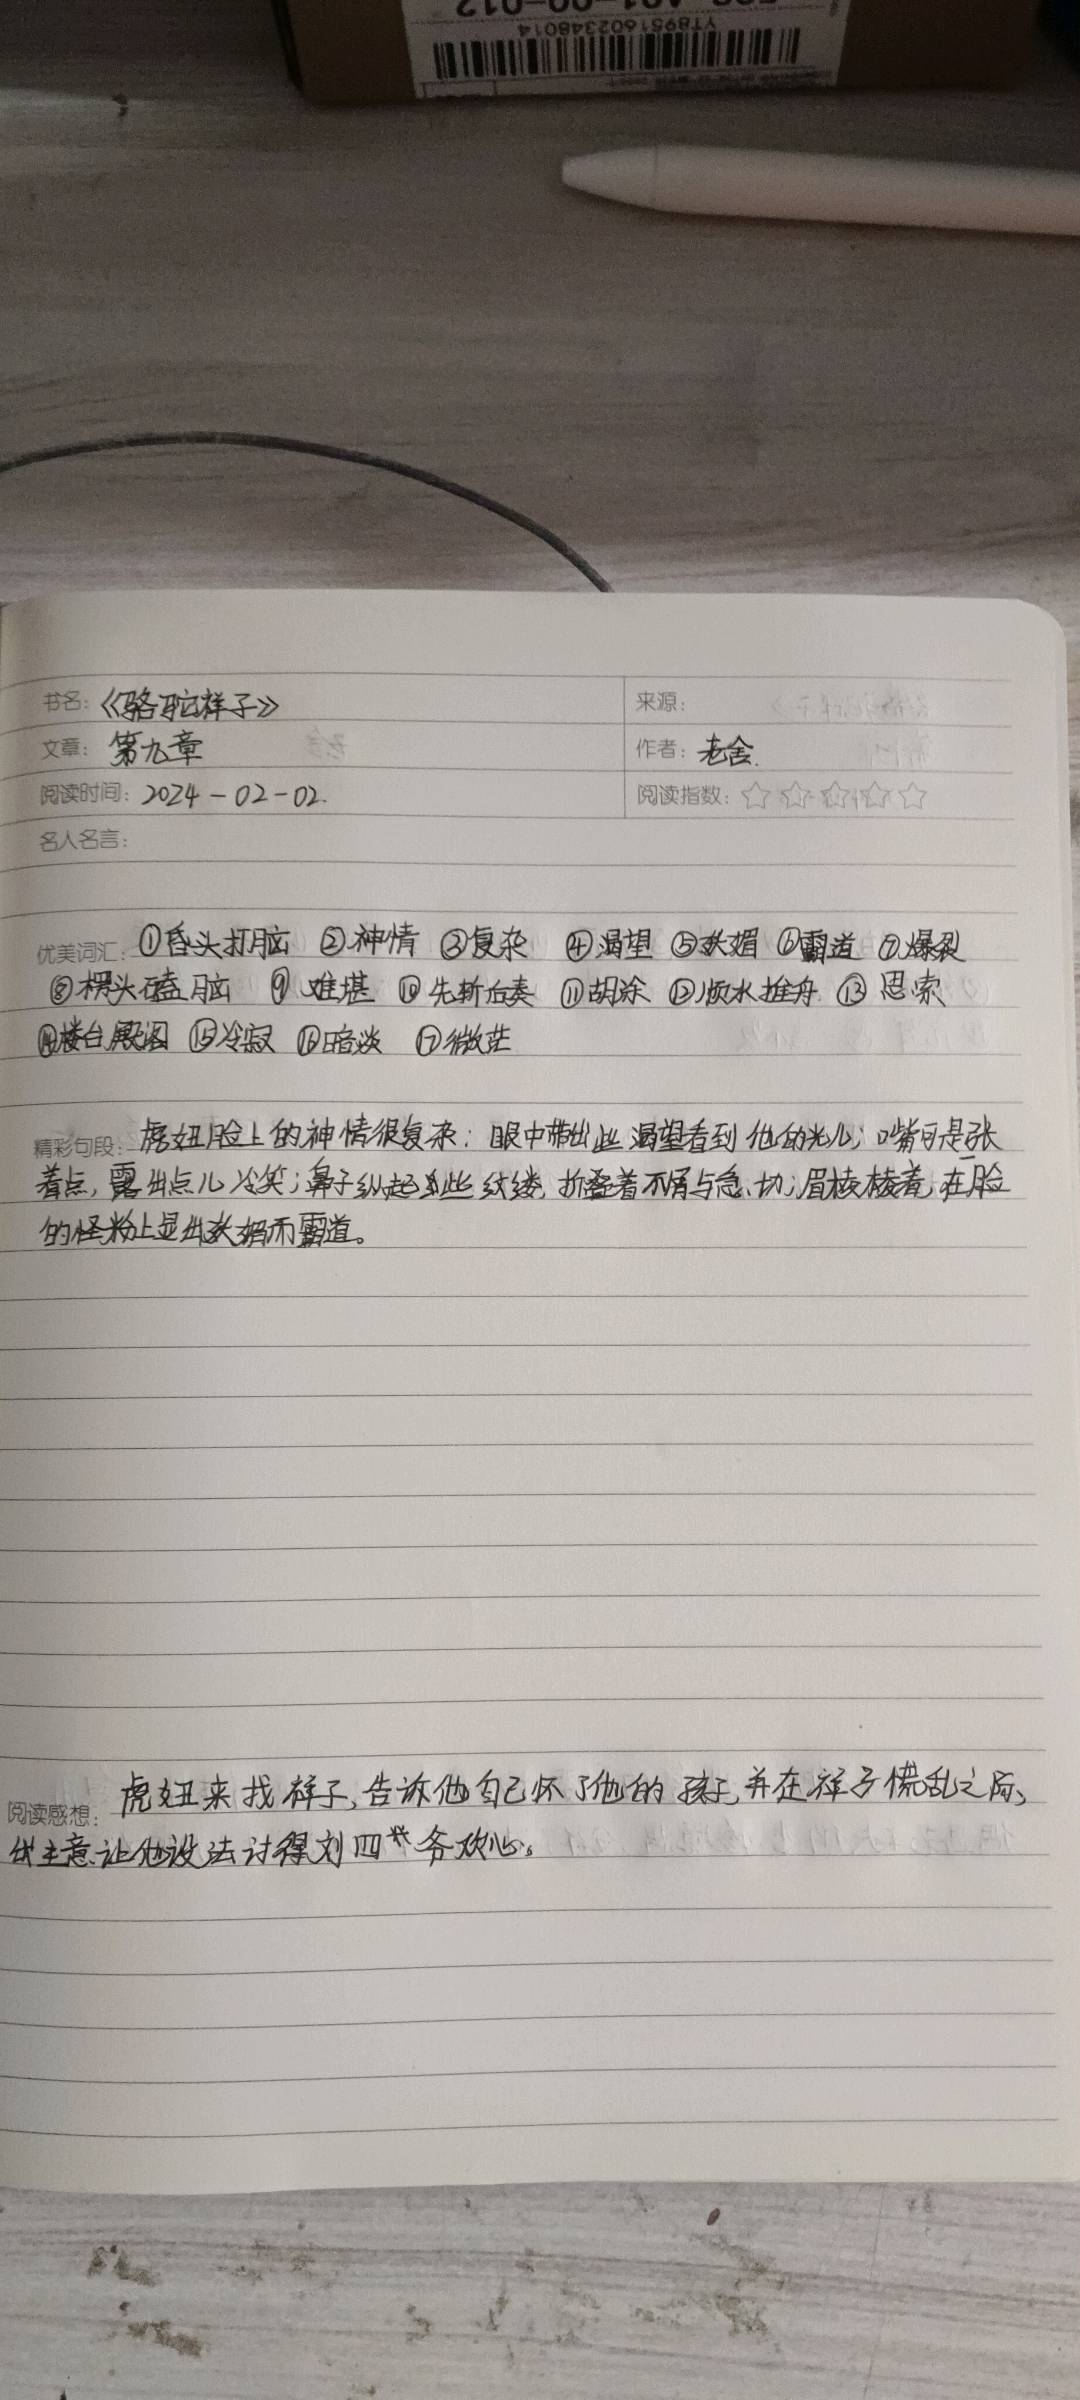 YT8951602348014
书名：《骆驼祥子》 来源：
文章：第九章 作者：老舍.
阅读时间：2024-02-02. 阅读指数：
名人名言：
优美词汇：①昏头打脑 ②神情 ③复杂 ④渴望 ⑤妖媚 ⑥霸道 ⑦爆裂
⑧楞头磕脑 ⑨难堪 ⑩先斩后奏 ⑪胡涂 ⑫顺水推舟 ⑬思索
⑭楼台殿阁 ⑮冷寂 ⑯暗淡 ⑰微茫
精彩句段：虎妞脸上的神情很复杂：眼中带出些渴望看到他的光儿；嘴可是张
着点，露出点儿冷笑；鼻子纵起些纹缕，折叠着不屑与急切；眉棱棱着，在脸
的怪粉上显出妖媚而霸道。
阅读感想：虎妞来找祥子，告诉他自己怀了他的孩子，并在祥子慌乱之际、
出主意让他设法讨得刘四爷欢心。